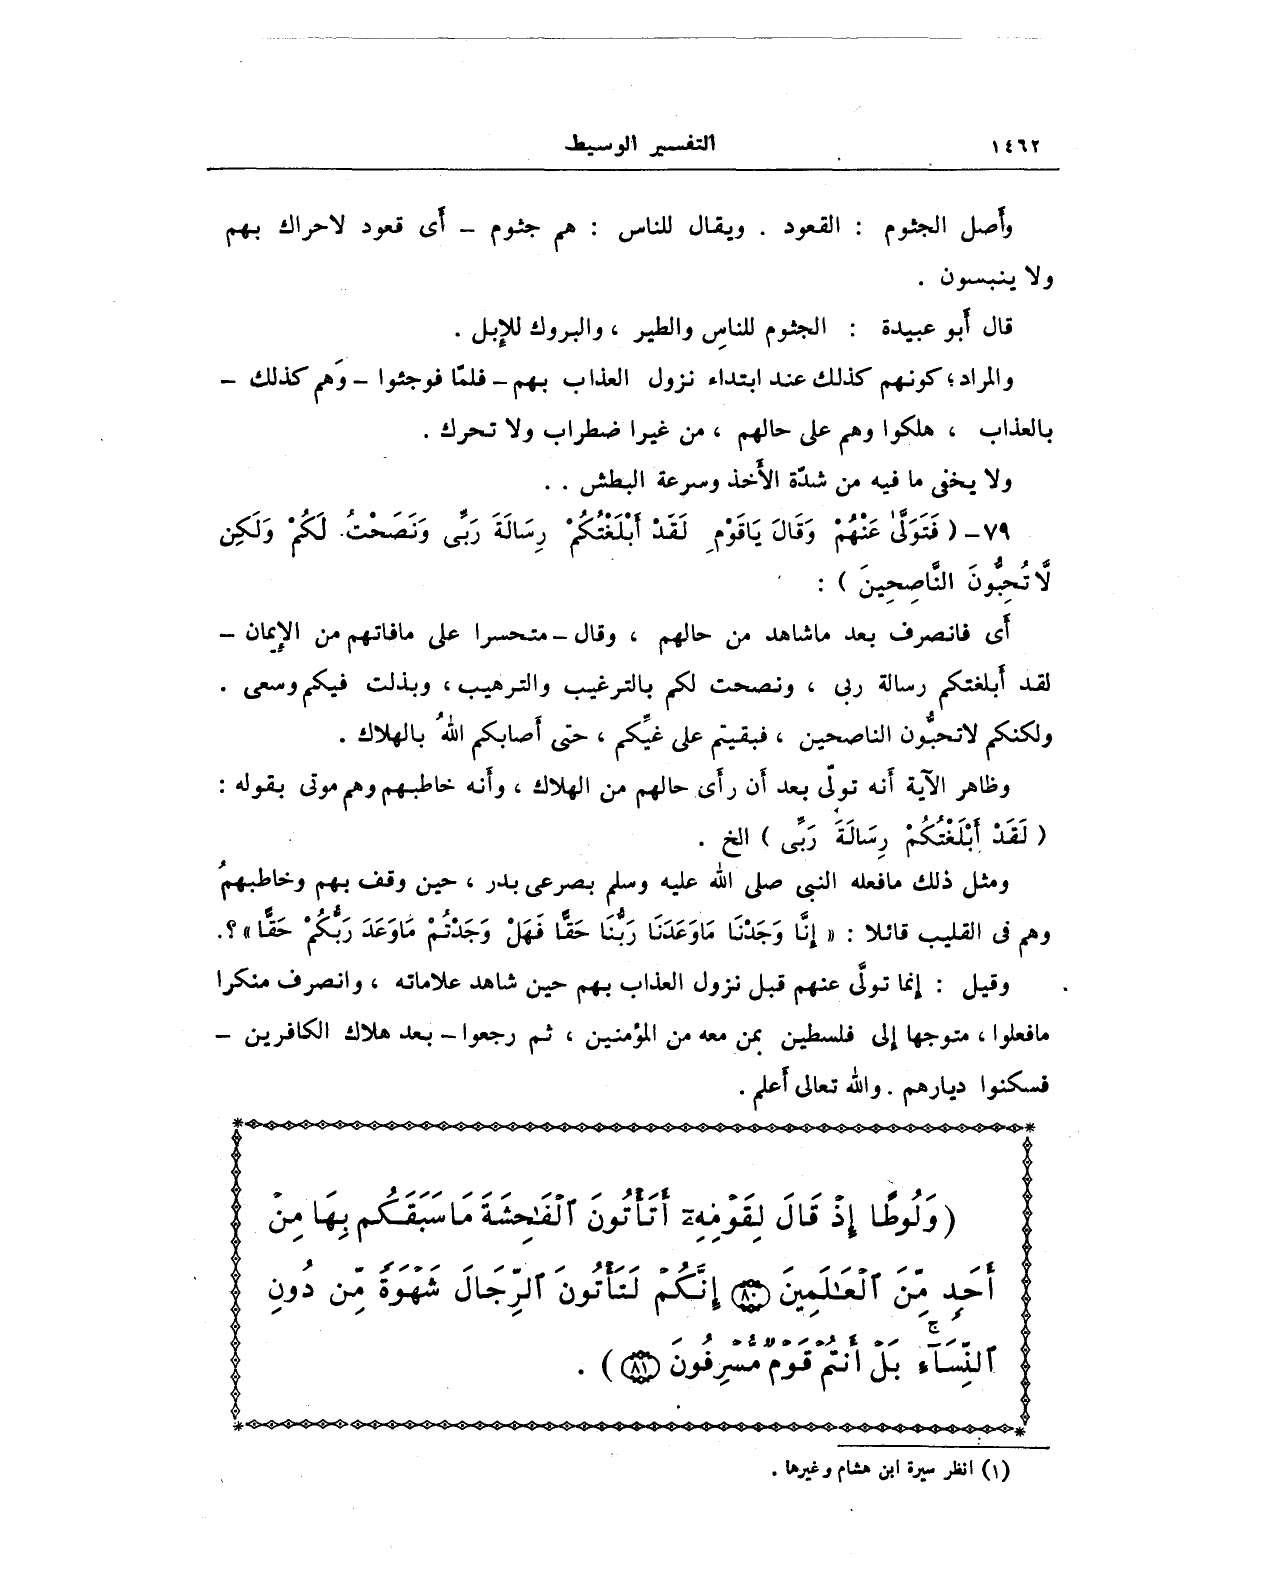 ١٤٦٢ التفسير الوسيط
وأصل الجثوم : القعود . ويقال للناس : هم جثوم – أى قعود لاحراك بهم
ولا ينبسون .
قال أبو عبيدة : الجثوم للناسِ والطير ، والبروك للإبل .
والمراد؛ كونهم كذلك عند ابتداء نزول العذاب بهم – فلمّا فوجئوا – وَهم كذلك –
بالعذاب ، هلكوا وهم على حالهم ، من غيرا ضطراب ولا تحرك .
ولا يخفى ما فيه من شدّة الأخذ وسرعة البطش . .
٧٩– ( فَتَوَلَّىٰ عَنْهُمْ وَقَالَ يَاقَوْمِ لَقَدْ أَبْلَغْتُكُمْ رِسَالَةَ رَبِّى وَنَصَحْتُ لَكُمْ وَلَكِن
لَّا تُحِبُّونَ النَّاصِحِينَ ) :
أى فانصرف بعد ماشاهد من حالهم ، وقال – متحسرا على مافاتهم من الإيمان –
لقد أبلغتكم رسالة ربى ، ونصحت لكم بالترغيب والترهيب ، وبذلت فيكم وسعى .
ولكنكم لاتحبُّون الناصحين ، فبقيتم على غيِّكم ، حتى أصابكم اللهُ بالهلاك .
وظاهر الآية أنه تولّى بعد أن رأى حالهم من الهلاك ، وأنه خاطبهم وهم موتى بقوله :
( لَقَدْ أَبْلَغْتُكُمْ رِسَالَةَ رَبِّى ) الخ .
ومثل ذلك مافعله النبى صلى الله عليه وسلم بصرعى بدر ، حين وقف بهم وخاطبهمُ
وهم فى القليب قائلا : « إِنَّا وَجَدْنَا مَاوَعَدَنَا رَبُّنَا حَقًّا فَهَلْ وَجَدْتُمْ مَاوَعَدَ رَبُّكُمْ حَقًّا » ؟.
وقيل : إنما تولَّى عنهم قبل نزول العذاب بهم حين شاهد علاماته ، وانصرف منكرا
مافعلوا ، متوجها إلى فلسطين بمن معه من المؤمنين ، ثم رجعوا – بعد هلاك الكافرين –
فسكنوا ديارهم . والله تعالى أعلم .
( وَلُوطًا إِذْ قَالَ لِقَوْمِهِۦٓ أَتَأْتُونَ ٱلْفَٰحِشَةَ مَا سَبَقَكُم بِهَا مِنْ
أَحَدٍ مِّنَ ٱلْعَٰلَمِينَ ٨٠ إِنَّكُمْ لَتَأْتُونَ ٱلرِّجَالَ شَهْوَةً مِّن دُونِ
ٱلنِّسَآءِ ۚ بَلْ أَنتُمْ قَوْمٌ مُّسْرِفُونَ ٨١ ) .
(١) انظر سيرة ابن هشام وغيرها .